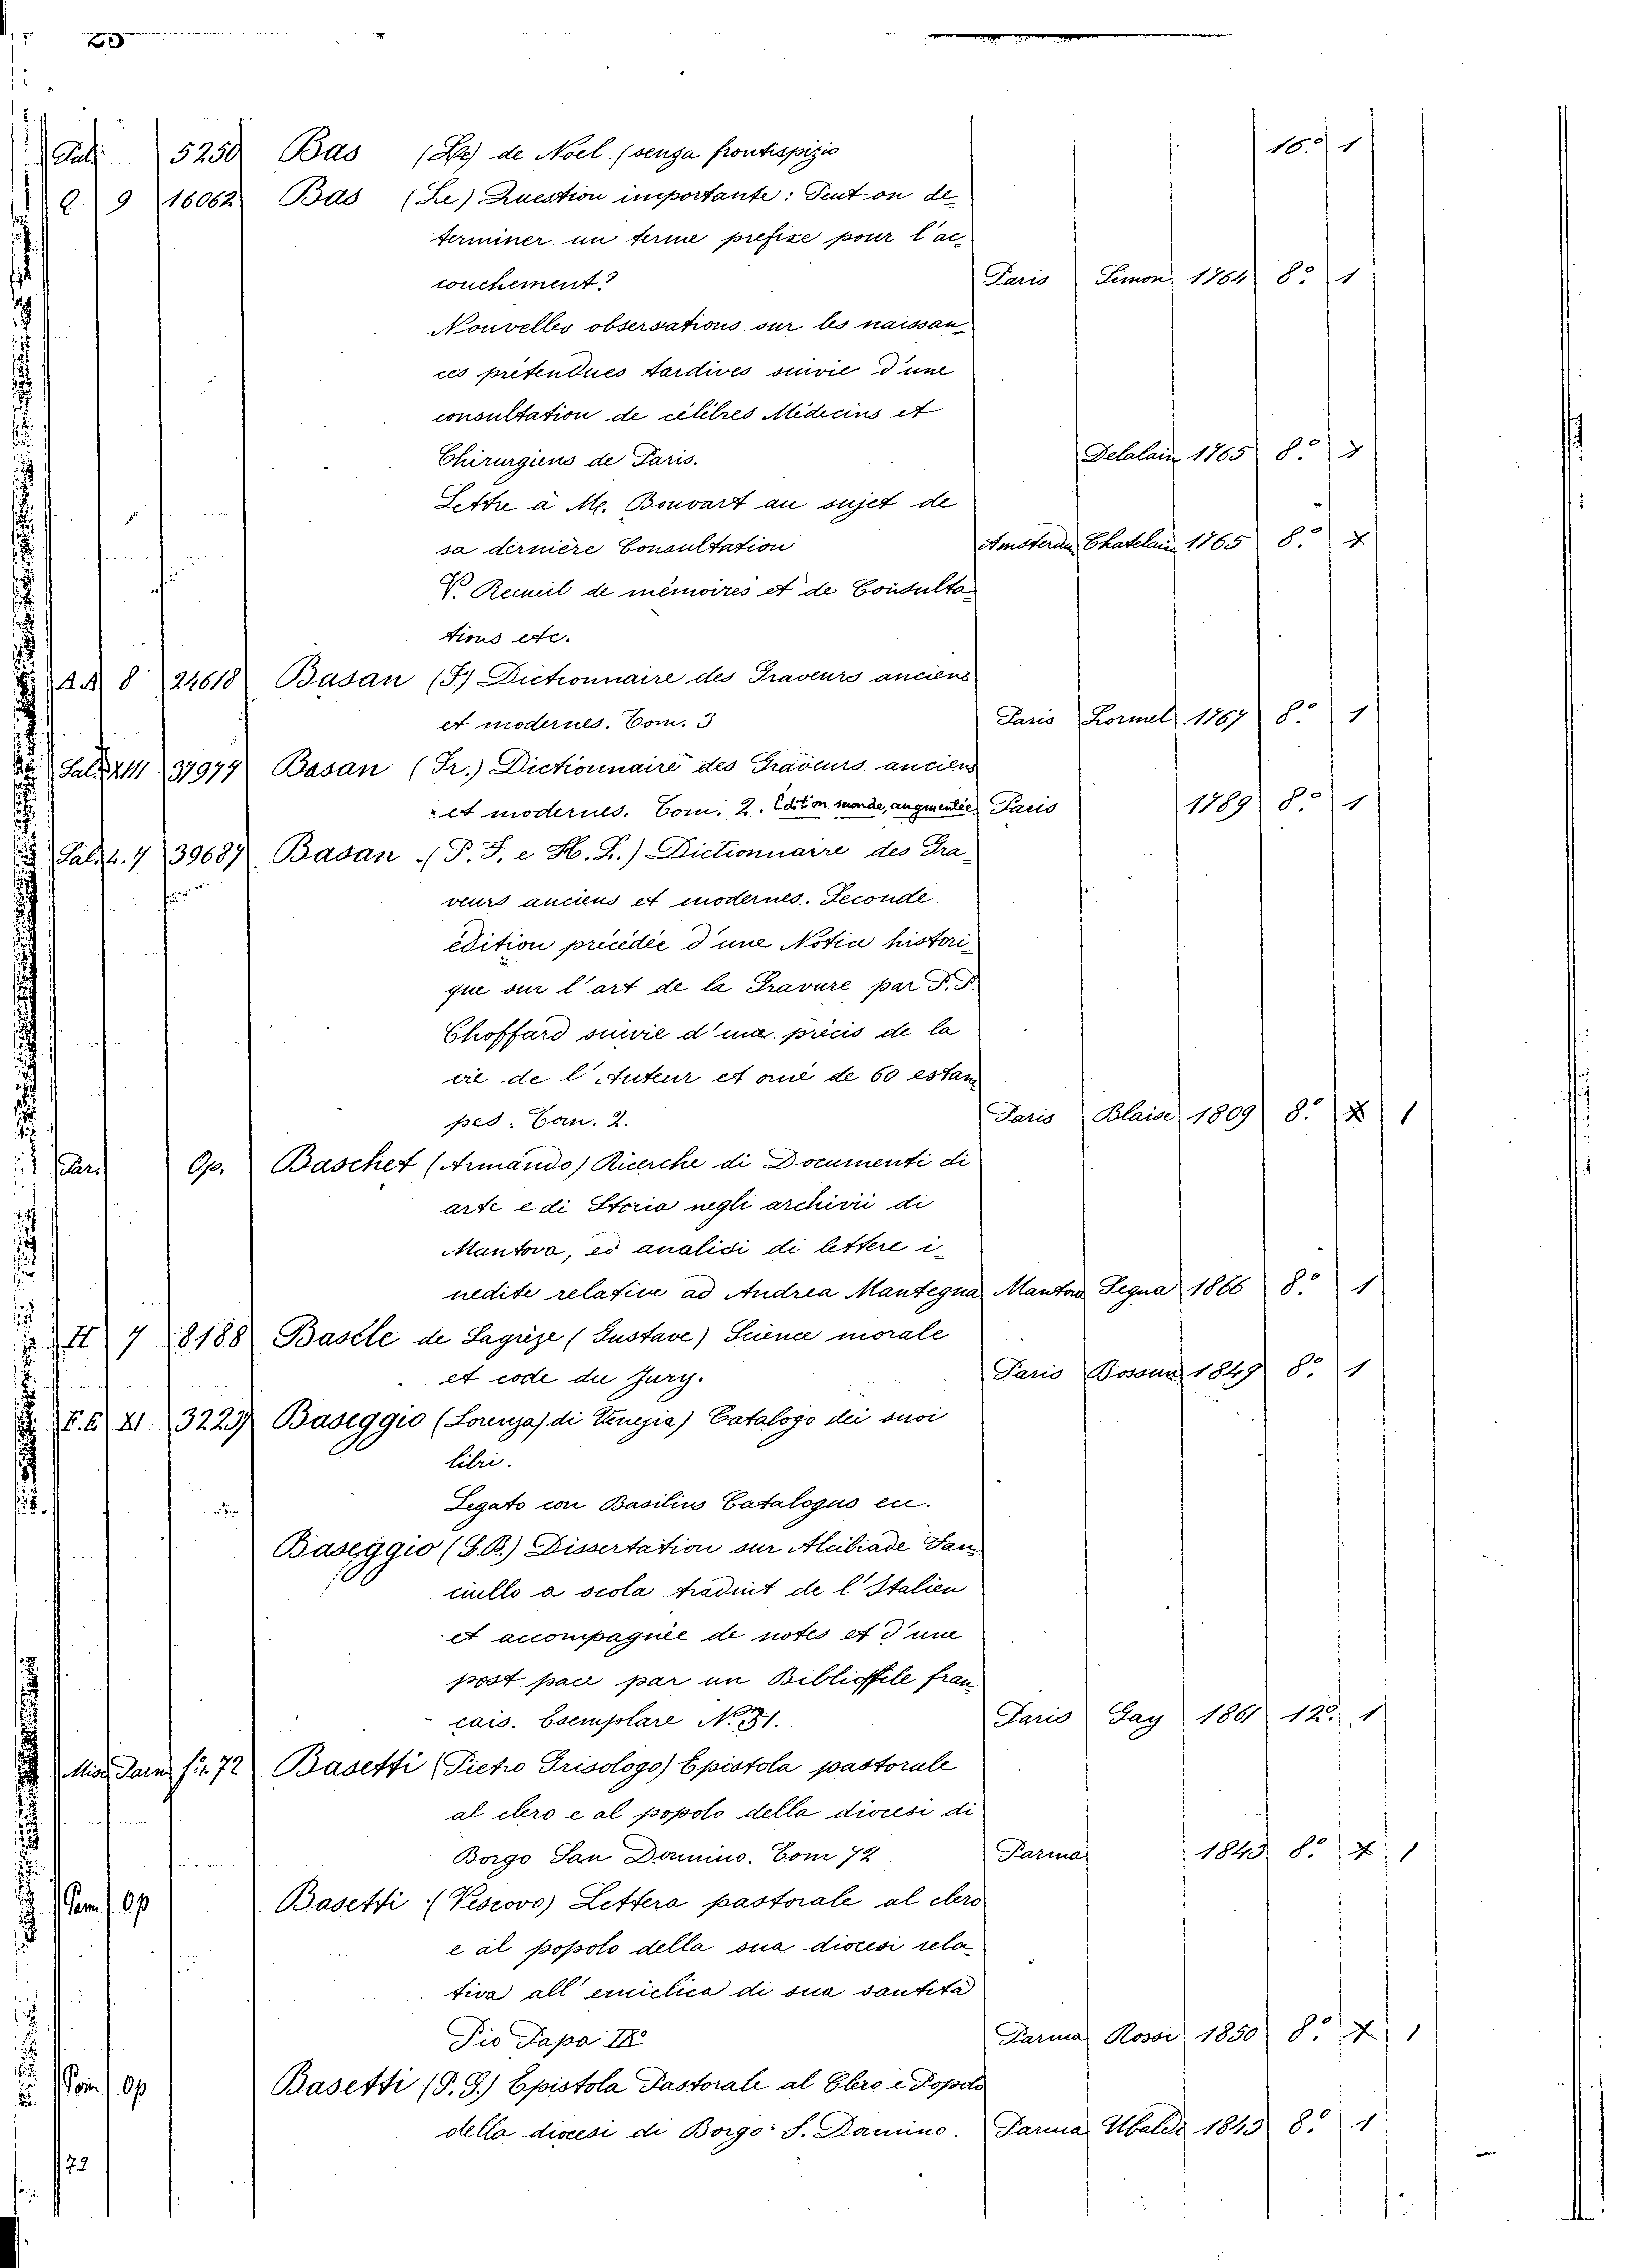 Pal. 5250 Bas (Le) de Noel (senza frontispizio 16.° 1
Q 9 16062 Bas (Le) Question importante: Peut-on de
terminer un terme prefixe pour l'ac
couchement? Paris Simon 1764 8.° 1
Nouvelles obsersations sur les naissan
ces prétendues tardives suivie d'une
consultation de célèbres Médecins et
Chirurgiens de Paris. Delalain 1765 8.°
Lettre à Mr. Bouvart au sujet de
sa dernière Consultation Amsterdam Chatelain 1765 8.°
V. Recueil de mémoires et de Consulta
tions etc.
AA 8 24618 Basan (F) Dictionnaire des Graveurs anciens
et modernes. Tom. 3 Paris Lormel 1767 8.° 1
Sal. 37977 Basan (Fr.) Dictionnaire des Graveurs anciens
et modernes. Tom. 2. Edition seconde, augmentée Paris 1789 8.° 1
Sal. 7 39687 Basan (P. F. e H. L.) Dictionnaire des Gra
veurs anciens et modernes. Seconde
édition précédée d'une Notice histori
que sur l'art de la Gravure par P. P.
Choffard suivie d'un précis de la
vie de l'Auteur et orné de 60 estam
pes. Tom. 2. Paris Blaise 1809 8.° 1
Par. Op. Baschet (Armando) Ricerche di Documenti di
arte e di Storia negli archivii di
Mantova, ed analisi di lettere i
nedite relative ad Andrea Mantegna Mantova Segna 1866 8.° 1
H 7 8188 Basele de Lagrèze (Gustave) Science morale
et code du Jury. Paris 1847 8.° 1
F.E XI 32237 Baseggio (Lorenzo) di Venezia) Catalogo dei suoi
libri.
Legato con Basilius Catalogus ec.
Baseggio (G.B.) Dissertation sur Alcibiade Fan
ciullo a scola traduit de l'Italien
et accompagnée de notes et d'une
post face par un Bibliofile fran
cais. Esemplare N. 31. Paris Gay 1861 12.° 1
Misc. Parm. fo. 72 Basetti (Pietro Grisologo) Epistola pastorale
al clero e al popolo della diocesi di
Borgo San Donnino. Tom 72 Parma 1843 8.° 1
Parm. Op Basetti (Vescovo) Lettera pastorale al clero
e al popolo della sua diocesi rela
tiva all'enciclica di sua santità
Pio Papa IX° Parma Rossi 1850 8.° 1
Parm. Op Basetti (P. G.) Epistola Pastorale al Clero e Popolo
della diocesi di Borgo S. Donnino. Parma Ubaldi 1843 8.° 1
72